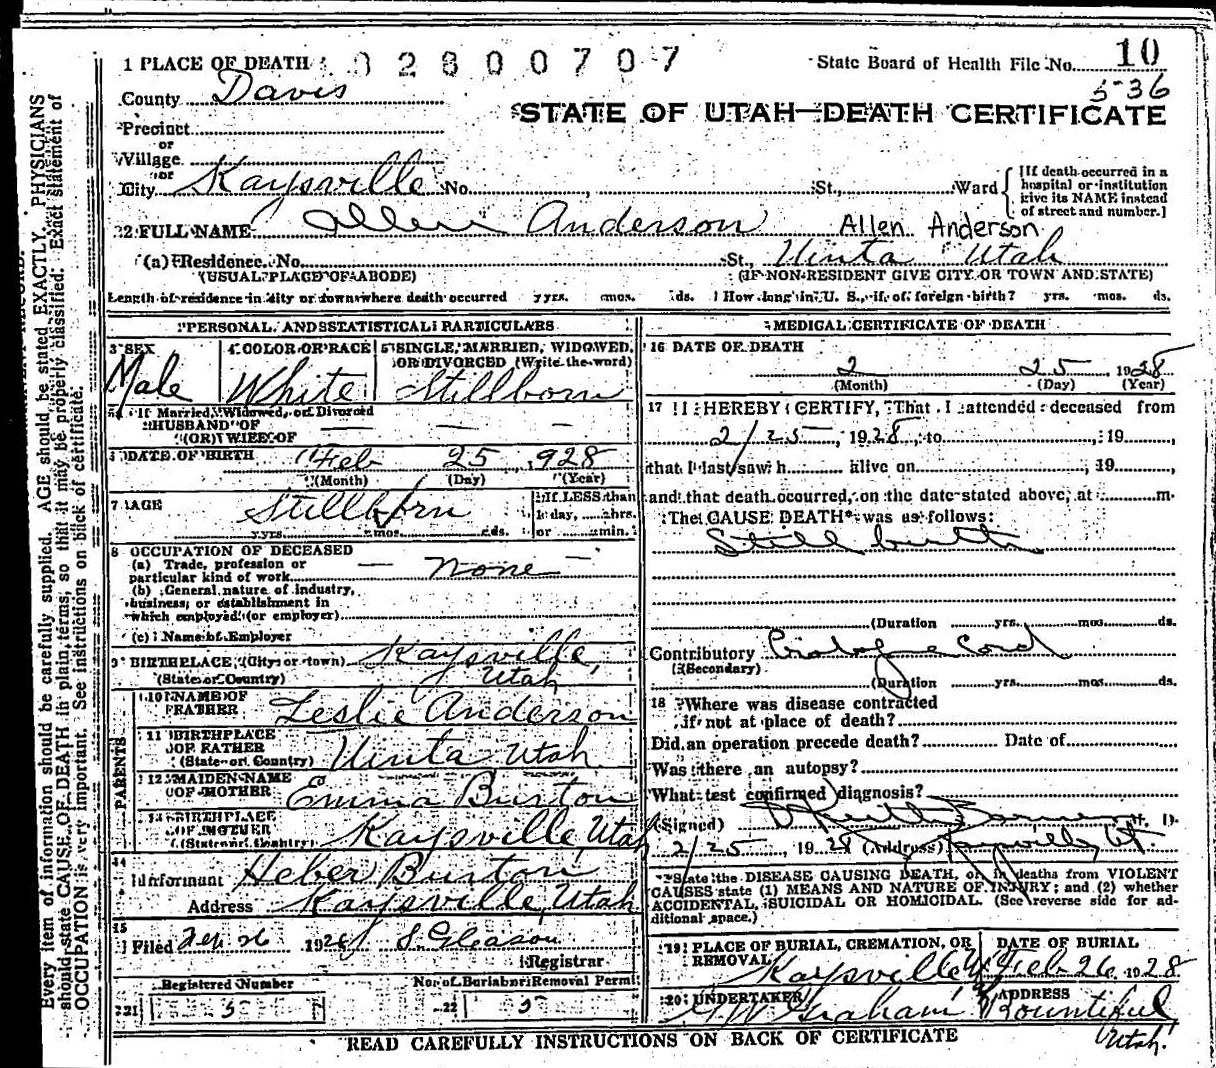 1 PLACE OF DEATH 0 2 8 0 0 7 0 7 State Board of Health File No. 10
5-36
County Davis
STATE OF UTAH—DEATH CERTIFICATE
Precinct
or
Village
or
City Kaysville No. , St., Ward
[If death occurred in a
hospital or institution
give its NAME instead
of street and number.]
2 FULL NAME Allen Anderson Allen Anderson
(a) Residence. No. St., Uinta Utah
(USUAL PLACE OF ABODE) (IF NON-RESIDENT GIVE CITY OR TOWN AND STATE)
Length of residence in city or town where death occurred yrs. mos. ds. How long in U. S., if of foreign birth? yrs. mos. ds.
PERSONAL AND STATISTICAL PARTICULARS
3 SEX
Male
4 COLOR OR RACE
White
5 SINGLE, MARRIED, WIDOWED,
OR DIVORCED (Write the word)
Stillborn
If Married, Widowed, or Divorced
HUSBAND OF
(OR) WIFE OF — — —
DATE OF BIRTH Feb 25, 1928
(Month) (Day) (Year)
7 AGE Stillborn
yrs. mos. ds.
If LESS than
1 day, hrs.
or min.
8 OCCUPATION OF DECEASED
(a) Trade, profession or
particular kind of work — none —
(b) General nature of industry,
business, or establishment in
which employed (or employer)
(c) Name of Employer
9 BIRTHPLACE, (City or town) Kaysville,
(State or Country) Utah
PARENTS
10 NAME OF
FATHER Leslie Anderson
11 BIRTHPLACE
OF FATHER
(State or Country) Uinta Utah
12 MAIDEN NAME
OF MOTHER Emma Burton
13 BIRTHPLACE
OF MOTHER
(State or Country) Kaysville, Utah
14
Informant Heber Burton
Address Kaysville, Utah
15
Filed Feb 26 1928 S. Gleason
Registrar
Registered Number No. of Burial or Removal Permit
21 5 22 5
MEDICAL CERTIFICATE OF DEATH
16 DATE OF DEATH
2 25 1928
(Month) (Day) (Year)
17 I HEREBY CERTIFY, That I attended deceased from
2/25, 1928, to , 19
that I last saw h alive on , 19
and that death occurred, on the date stated above, at m.
The CAUSE DEATH* was as follows:
Still birth
(Duration yrs. mos. ds.
Contributory Cord
(Secondary)
(Duration yrs. mos. ds.
18 Where was disease contracted
if not at place of death?
Did an operation precede death? Date of
Was there an autopsy?
What test confirmed diagnosis?
(Signed) M. D.
2/25, 1928 (Address) Kaysville, Ut.
*State the DISEASE CAUSING DEATH, or in deaths from VIOLENT
CAUSES state (1) MEANS AND NATURE OF INJURY; and (2) whether
ACCIDENTAL, SUICIDAL OR HOMICIDAL. (See reverse side for ad-
ditional space.)
19 PLACE OF BURIAL, CREMATION, OR
REMOVAL Kaysville
DATE OF BURIAL
Feb 26 1928
20 UNDERTAKER
Graham
ADDRESS
Bountiful
Utah.
READ CAREFULLY INSTRUCTIONS ON BACK OF CERTIFICATE
Every item of information should be carefully supplied. AGE should be stated EXACTLY. PHYSICIANS
should state CAUSE OF DEATH in plain terms, so that it may be properly classified. Exact statement of
OCCUPATION is very important. See instructions on back of certificate.